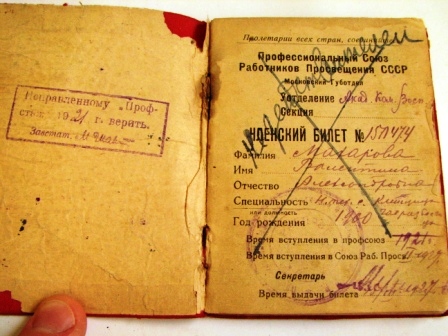 Исправленному "Проф-
стаж 1921 г. верить.
Заветат.
Пролетарии всех стран, соединяйтесь
Профессиональный Союз
Работников Просвещения СССР
Московский Губотдел
Отделение Акад. Ком. Восп.
Секция
ЧЛЕНСКИЙ БИЛЕТ № 150474
Фамилия Макарова
Имя Валентина
Отчество Александровна
Специальность
или должность
Год рождения 1900
Время вступления в профсоюз 1921
Время вступления в Союз Раб. Просв.
Секретарь
Время выдачи билета